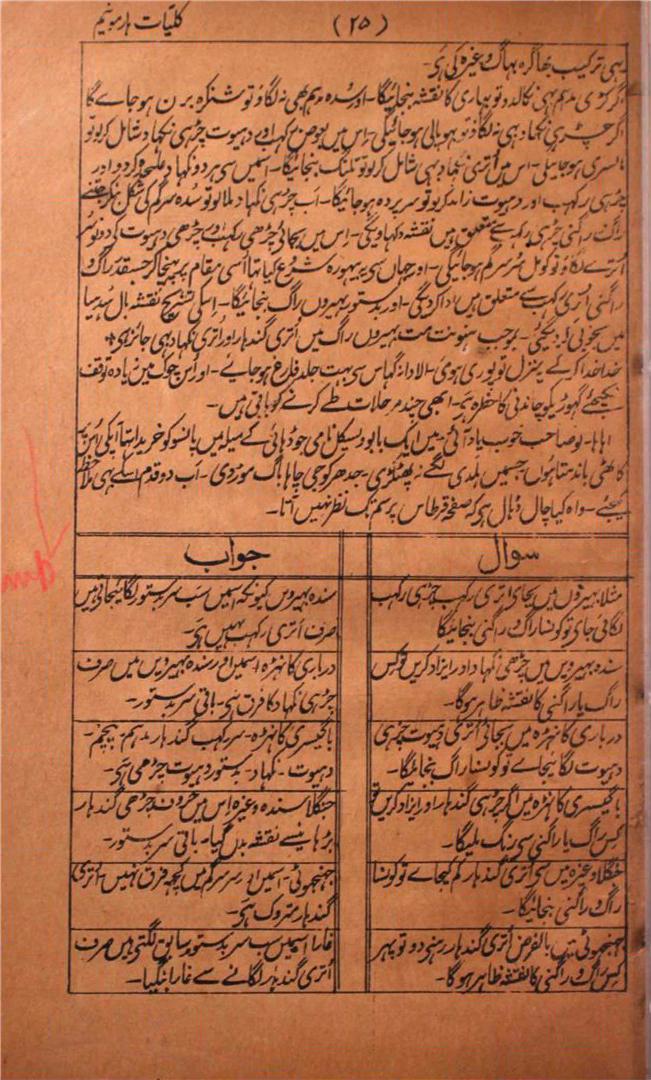 کلیات ہارمونیم
(۲۵)
رہی ترکیب بھاگرہ بہاگ وغیرہ کی ہَی۔
گر کڑی مدہم بہی نکالدو تو بہاری کا نقشہ بنجائیگا۔ اور سُدہ مدہم بھی نہ لگاؤ تو شنکرہ برن ہو جاے گا
اگر چڑہی نکھاد بہی نہ لگاؤ تو بہوپالی ہو جائیگی۔ اِس میں بعوض رکہب کے دہیوت چڑہی نکھاد شامل کر لو تو
اسمیں سی ہر دو نکھاد علیحدہ کردو اور
چڑہی رکہب اور دہیوت زائد کر لو تو سرپردہ ہو جائیگا۔ اب چڑہی نکہاد ملا لو تو سُدہ سرگم کی شکل
راگ راگنی چڑہی رکہب سے متعلق ہیں نقشہ دکہاویگی۔ اِس میں بجائے چڑھی رکہب و چڑھی دہیوت کی دونو سُر
اُترے لگاؤ تو کومل سُر سرگم ہو جائیگی۔ اور جہاں سے یہ شروع کیا تہا اُسی مقام پر پہنچا کر جسقدر راگ و
راگنی اُتری رکہب سے متعلق ہیں ادا کر دیگی۔ اور بدستور بہیروں راگ بنجائیگا۔ اِسکی تشریح نقشہ
میں بخوبی دیکھئے۔ بموجب ہنونت مت بہیروں راگ میں اُتری گندہار اور اُتری نکہاد بہی جائز ہَی۔
خدا خدا کر کے یہ منزل تو پوری ہوئی۔ الا دانہ گہاس سی بہت جلد فارغ ہو جایے۔ اور اُس چوک میں زیادہ توقف
نکیجئے گھوڑیکو چاندنی کا خطرہ ہَی۔ ابھی چند مرحلات طے کرنے کو باقی ہیں۔
اہاہا۔ لو صاحب خوب یاد آئی۔ میں ایک بابو سیکل نامی جو ڈہائی کے میلہ میں پانسو کو خریدا تہا آپکی اُس پر
کاٹھی باندھتا ہوں جسمیں ہلدی لگے نہ پھٹکڑی۔ جدھر کو جی چاہا باگ موڑ دی۔ اب دو قدم اِسکے بہی ملاحظہ
کیجئے۔ واہ کیا چال ڈہال ہی کہ صفحہ قرطاس پر سُم تک نظر نہیں آتا۔
سوال
جواب
مثلاً بہیروں میں بجاے اُتری رکہب چڑہی رکہب
لگائی جای تو کونسا راگ و راگنی بنجائیگا
سندہ بہیرویں کیونکہ اِسمیں سب سر بدستور لگائیجاتی ہیں
صرف اُتری رکہب نہیں ہَی۔
سندہ بہیرویں میں چڑھی نکہاد اور ایزاد کریں تو کِس
راگ یا راگنی کا نقشہ ظاہر ہوگا۔
درباری کانہڑہ اِسمیں اور سندہ بہیرویں میں صرف
چڑہی نکہاد کا فرق ہَی۔ باقی سر بدستور۔
درباری کانہڑہ میں بجائے اُتری دہیوت چڑہی
دہیوت لگائیجاے تو کونسا راگ بنجائیگا۔
باگیسری کانہڑہ۔ سر رکہب گندہار۔ مدہم۔ پنچم۔
دہیوت۔ نکہاد۔ بدستور دہیوت چڑھی ہَی۔
باگیسری کانہڑہ میں اگر چڑہی گندہار اور ایزاد کریں تو
کس راگ یا راگنی سی رنگ ملیگا۔
جنگلا سندہ وغیرہ اِس میں صرف چڑھی گندہار
بڑہانیسے نقشہ بدل گیا۔ باقی سر بدستور۔
جنگلا وغیرہ میں سی اُتری گندہار کم کیجاے تو کونسا
راگ و راگنی بنجائیگا۔
جہنجھوٹی۔ اِسمیں اور سرگم میں کچہہ فرق نہیں۔ اُتری
گندہار متروک ہَی۔
جہنجھوٹی میں بالفرض اُتری گندہار رہنے دو تو پہر
کس راگ و راگنی کا نقشہ ظاہر ہوگا۔
غارا اِسمیں سب سر بدستور سابق لگتی ہیں صرف
اُتری گندہار لگانے سے غارا بنگیا۔